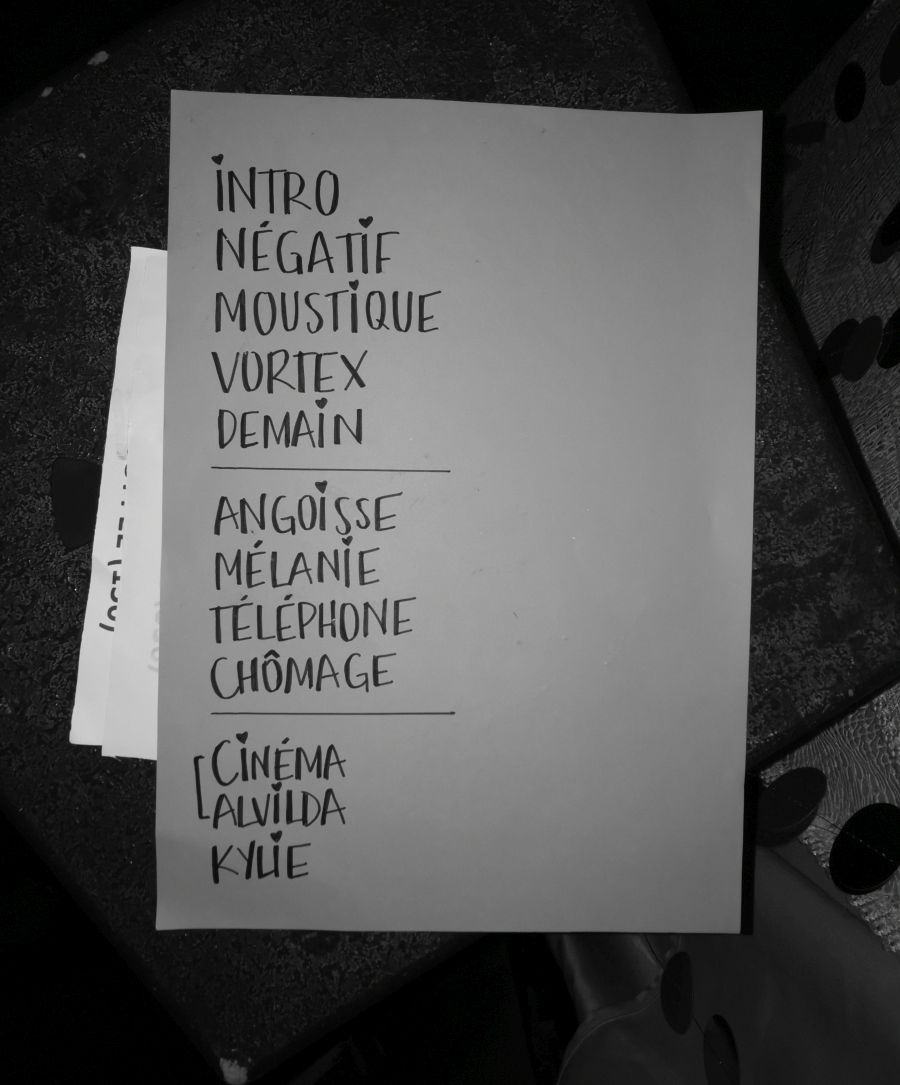 INTRO
NÉGATIF
MOUSTIQUE
VORTEX
DEMAIN
ANGOISSE
MÉLANIE
TÉLÉPHONE
CHÔMAGE
CINÉMA
ALVILDA
KYLIE